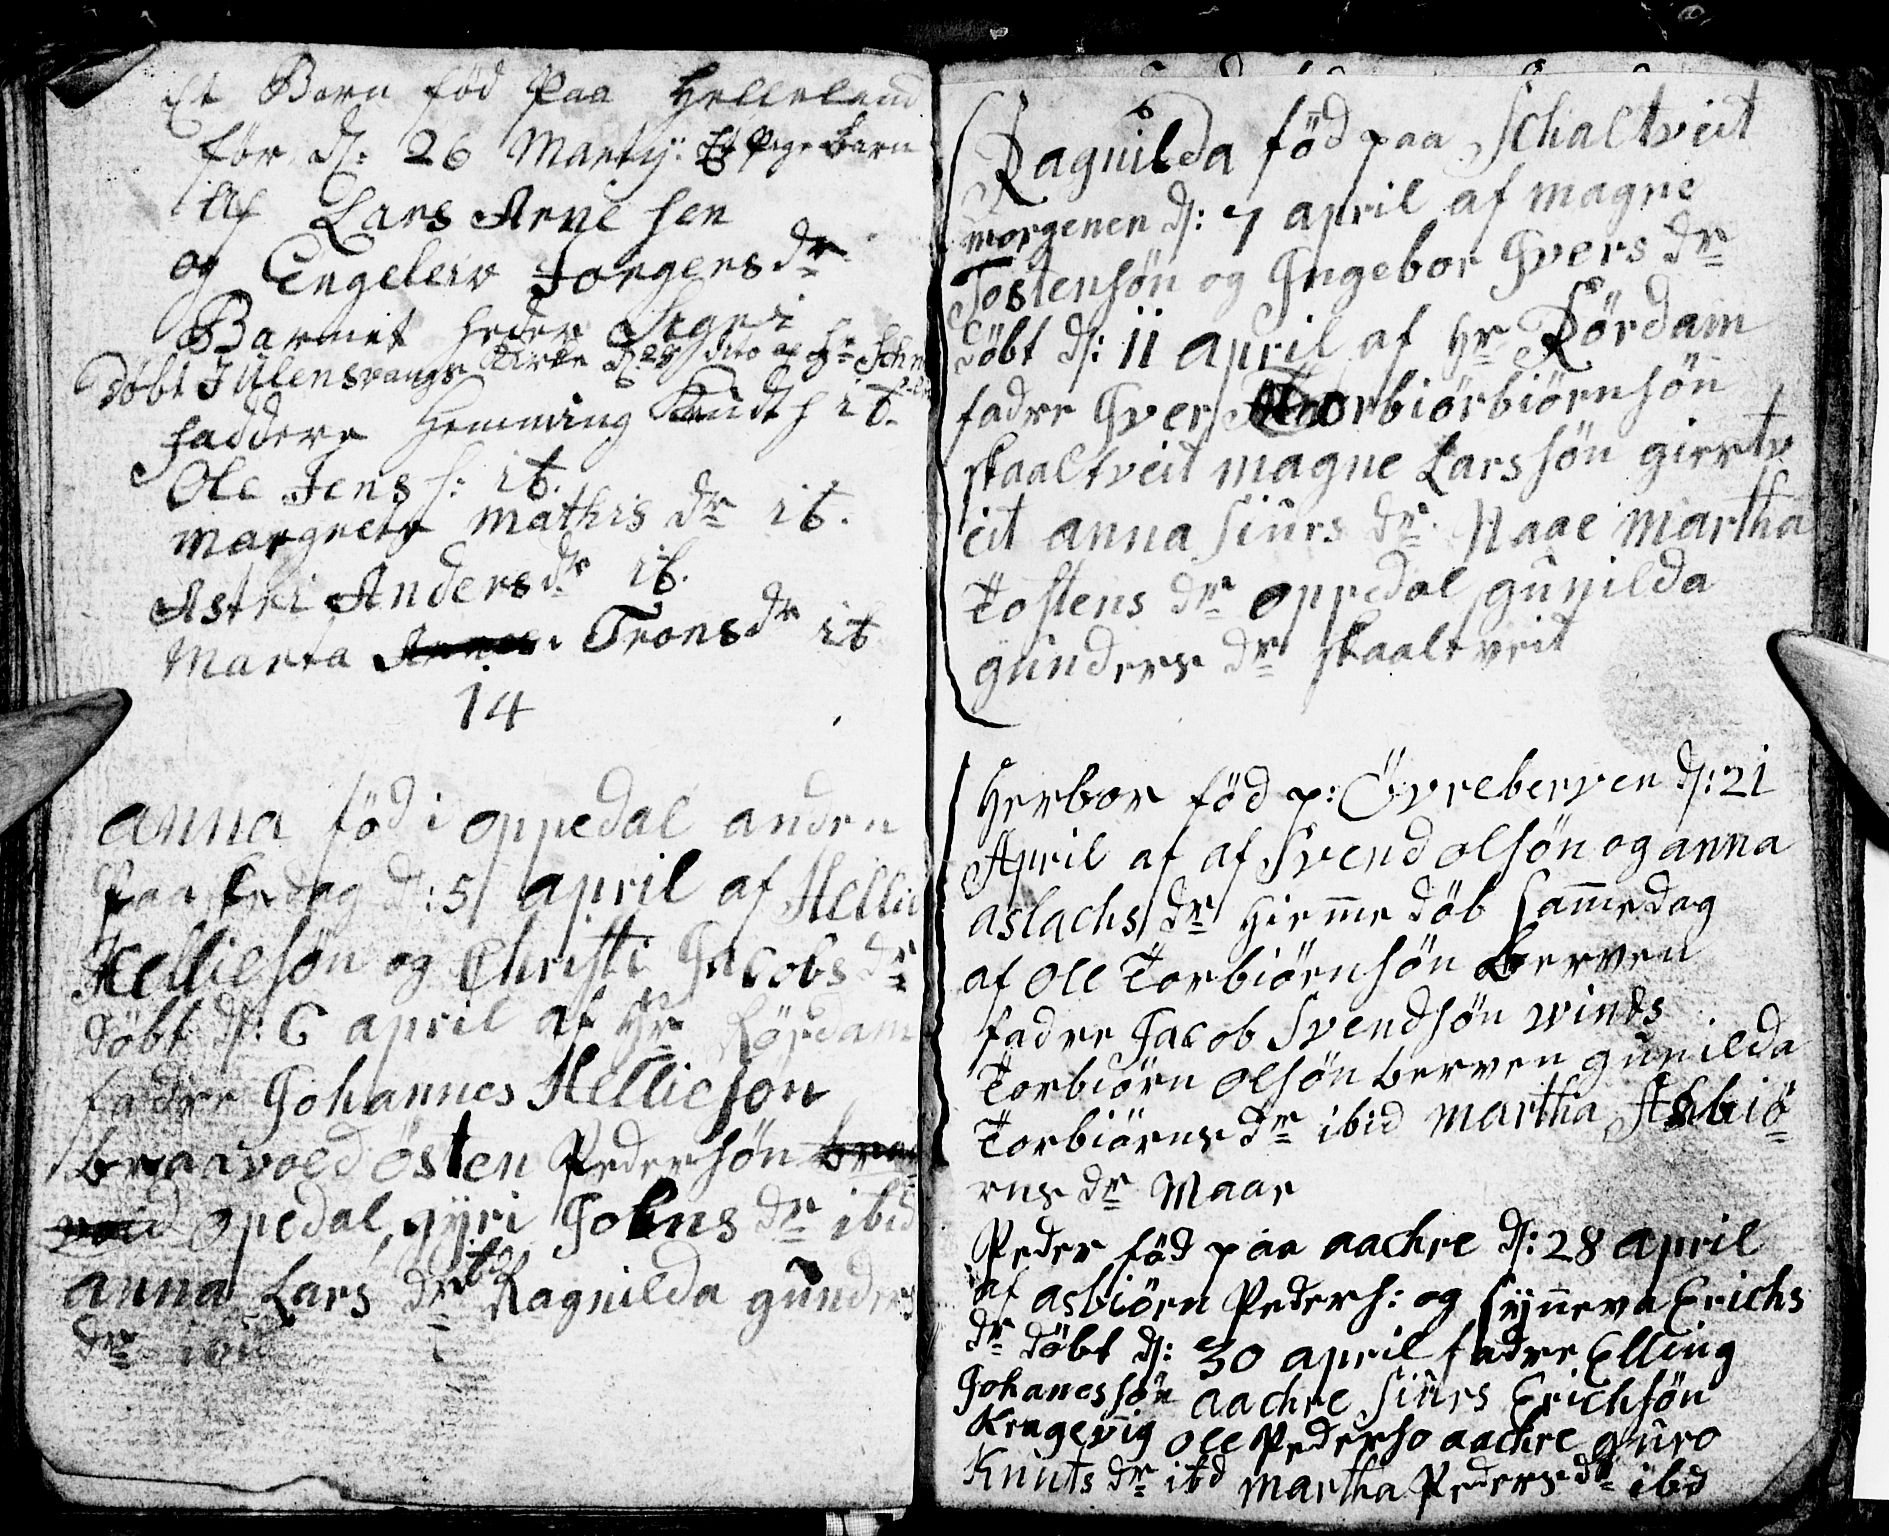 Et Barn fød Paa Helleland
før d: 26 Marty: Et Pige Barn
Af Lars Arne sen
og Engeleiv Jorgens dr
Barnet heder Sigri
Døbt I Ulensvangs Kirke d: 28 dito af Hr Sch
faddere Hemming Knudt s ib.
Ole Jens s: ib.
Margrete Mathis dr ib.
Astri Anders dr ib.
Marta Trons dr ib
14
anna fød i oppedal anden
Paaske dag d: 5 april af Hellie
Hellieson og Christi Jacobs dr
døbt d: 6 april af Hr Rördam
fadre Johannes Hellieson
braavold östen Pedersön
opedal, gyri Johns dr ibid
anna Lars dr ibd Ragnilda gunders
dr ibid
Ragnilda föd paa Schaltveit
morgenen d: 7 april af magne
Tostensön og Ingebor Ivers dr
döbt d: 11 april af Hr Rördam
fadre Iver Torbiörbiörnsön
skaaltveit magne Larssön giertv
eit anna siurs dr Haae martha
Tostens dr oppedal gunilda
gunders dr skaaltveit
Herbor föd p: Övreberven d: 21
April af af Svend olsön og anna
aslachs dr hiemme döb samme dag
af Ole Torbiörnsön Berven
fadre Jacob Svendsön winds
Torbiörn olsön berven gunilda
Torbiörns dr ibid martha Asbiö
rns dr Maar
Peder föd paa aachre d: 28 april
af asbiörn Peders: og synneva Erichs
dr döbt d: 30 april fadre Elling
Johanessön aachre siurs Erichsön
Kragevig ole Pederso aachre guro
Knuts dr ibd martha Peders dr ibd